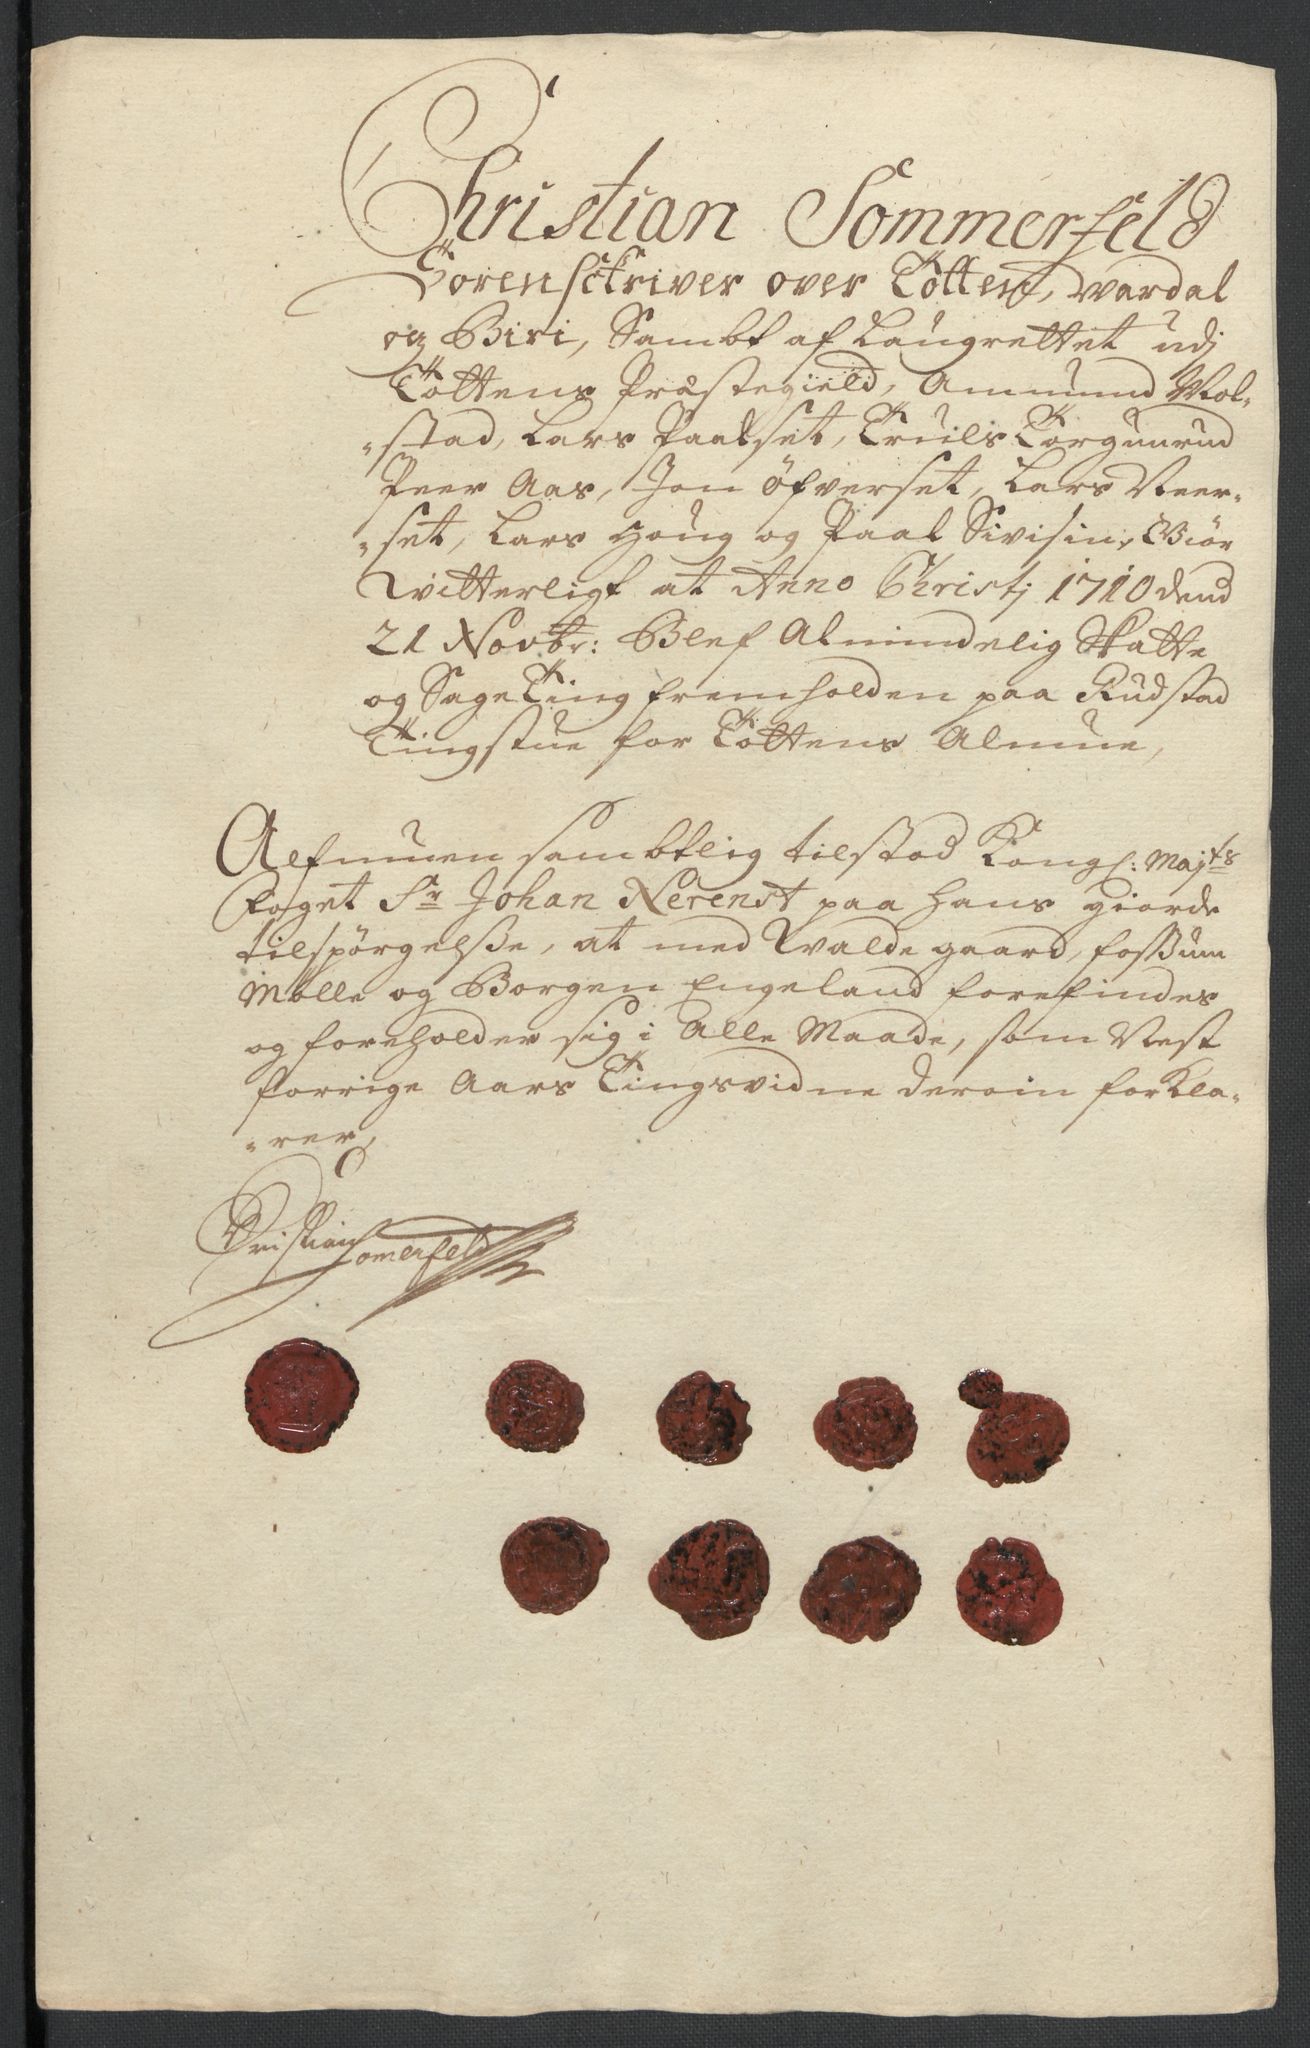 Christian Sommerfeld
Sorenskriver over Totten, Wardal
og Biri, Sambt af Laugrettet udj
Tottens Præstegield, Ammund Wol-
-stad, Lars Paalset, Truls Torgunrud
Peer Aas, Jon Öfverset, Lars Neer-
-set, Lars Houg og Paal Sivisin, Giör
Witterligt at Anno Christj 1710 dend
21 Novbr: Blef Almindelig Skatte
og Sage Ting fremholden paa Rudstad
Tingstue for Tottens Almue,
Alfmuen sambtlig tilstod Kongl: Majts
Foget Sr Johan Nerenst paa hans giorde
tilspörgelsße, at med Walde gaard, Foßum
Mölle og Borgen Engeland forefindes
og foreholder sig i Alle Maade, som Nest
forrige Aars Tingsvidne derom forkla-
-rer,
Christian Somerfeld